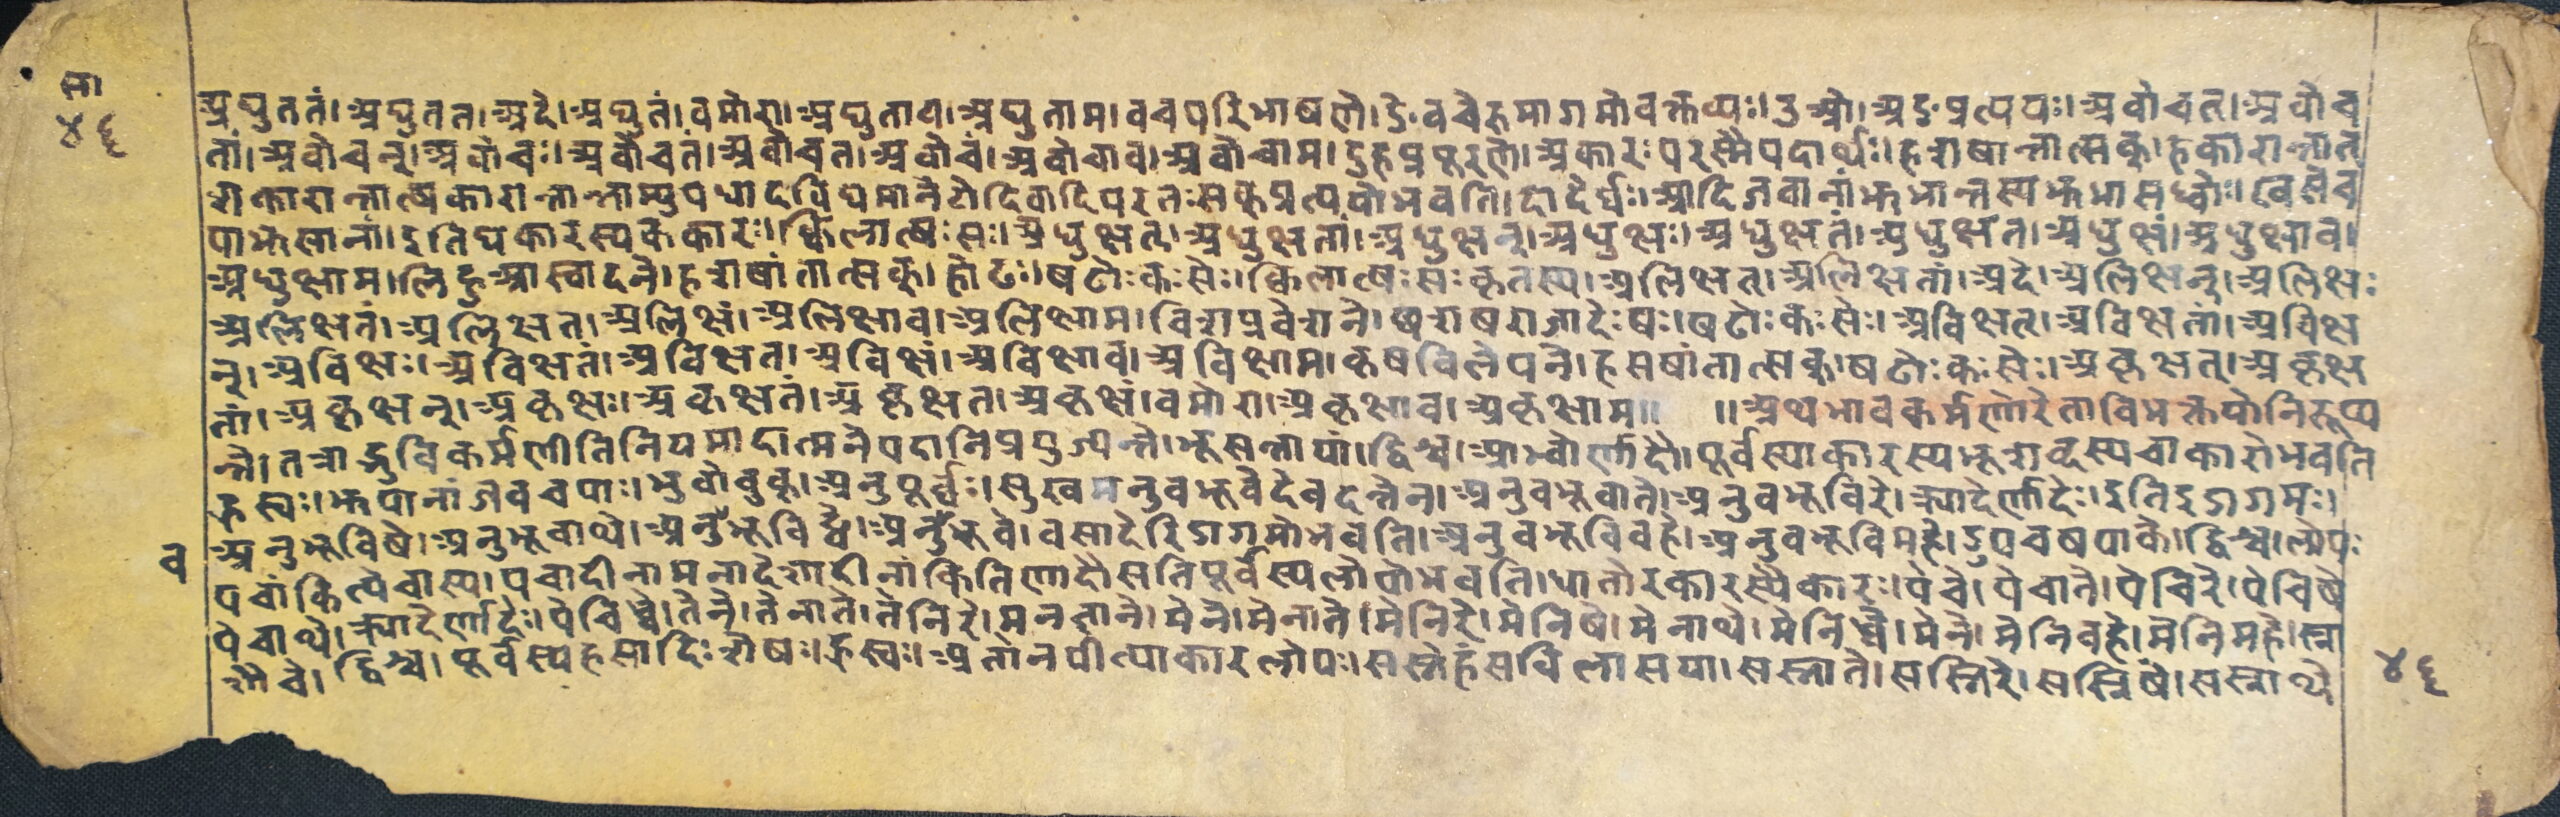 सा
४६
अघुततं। अघुतत। अदे। अघुतं। वमोरा। अघुताव। अघुताम। वच परिभाषणे। ङे वचेरुमागमो वक्तव्यः। उ ओ। अङ प्रत्ययः। अवोचत्। अवोच
तां। अवोचन्। अवोचः। अवोचतं। अवोचत। अवोचं। अवोचाव। अवोचाम। दुह प्रपूरणे। अकारः परस्मैपदार्थः। हशषान्तात्सक्। हकारान्तात्
शकारान्तात्षकारान्तान्नाम्युपधादविद्यमानेटो दिवादिपरतः सक् प्रत्ययो भवति। दादेर्घः। आदिजबानां झभान्तस्य झभा सध्वोः। खसे च
पा झसानां। इति घकारस्य ककारः। क्विलात्षः सः। अधुक्षत्। अधुक्षतां। अधुक्षन्। अधुक्षः। अधुक्षतं। अधुक्षत। अधुक्षं। अधुक्षाव।
अधुक्षाम। लिह आस्वादने। हशषांतात्सक्। हो ढः। षढोः कः से। क्विलात्षः सः कृतस्य। अलिक्षत्। अलिक्षतां। अदे। अलिक्षन्। अलिक्षः
अलिक्षतं। अलिक्षत। अलिक्षं। अलिक्षाव। अलिक्षाम। विश प्रवेशने। छशषराजादेः षः। षढोः कः से। अविक्षत्। अविक्षतां। अविक्ष
न्। अविक्षः। अविक्षतं। अविक्षत। अविक्षं। अविक्षाव। अविक्षाम। कृष विलेपने। हसषांतात्सक्। षढोः कः से। अकृक्षत्। अकृक्ष
तां। अकृक्षन्। अकृक्षः। अकृक्षतं। अकृक्षत। अकृक्षं। वमोरा। अकृक्षाव। अकृक्षाम॥ ॥ अथ भावकर्मणोरेता विभक्तयो निरूप्य
न्ते। तत्राद्भुवि कर्मणीति नियमादात्मनेपदानि प्रयुज्यन्ते। भू सत्तायां। द्विश्च। आभ्वोर्णादौ। पूर्वस्याकारस्य भूशब्दस्य चाकारो भवति
ह्रस्वः। झपानां जबचपाः। भुवो वुक्। अनुपूर्वः। सुखमनुबभूवे देवदत्तेन। अनुबभूवाते। अनुबभूविरे। क्र्यादेर्णादेः। इति इडागमः।
अनुभूविषे। अनुभूवाथे। अनुभूविध्वे। अनुभूवे। वसादेरिडागमो भवति। अनुबभूविवहे। अनुबभूविमहे। डुपचष पाके। द्विश्च। लोपः
व
पचां कित्ये चास्य। पचादीनामनादेशादीनां किति णादौ सति पूर्वस्य लोपो भवति। धातोरकारस्यैकारः। पेचे। पेचाते। पेचिरे। पेचिषे
पेचाथे। क्र्यादेर्णादेः। पेचिध्वे। तेने। तेनाते। तेनिरे। मन ज्ञाने। मेने। मेनाते। मेनिरे। मेनिषे। मेनाथे। मेनिध्वे। मेने। मेनिवहे। मेनिमहे। स्ना
शौचे। द्विश्च। पूर्वस्य हसादिः शेषः। ह्रस्वः। आतोनपीत्याकारलोपः। सस्ने सस्नाते। सस्निरे। सस्निषे। सस्नाथे
४६